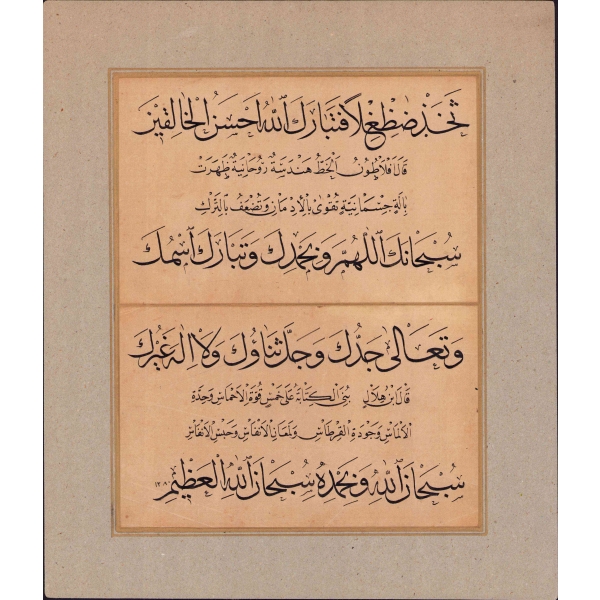 ثخذ ضظغلا فتبارك الله احسن الخالقين
قال افلاطون الخط هندسة روحانية ظهرت
بالة جسمانية تقوى بالادمان وتضعف بالترك
سبحانك اللهم وبحمدك وتبارك اسمك
وتعالى جدك وجل ثناؤك ولا اله غيرك
قال ابن هلال بنى الكتابة على خمس قوة الاحماس وحدة
الالماس وجودة القرطاس ولمعان الانقاس وحبس الانفاس
سبحان الله وبحمده سبحان الله العظيم